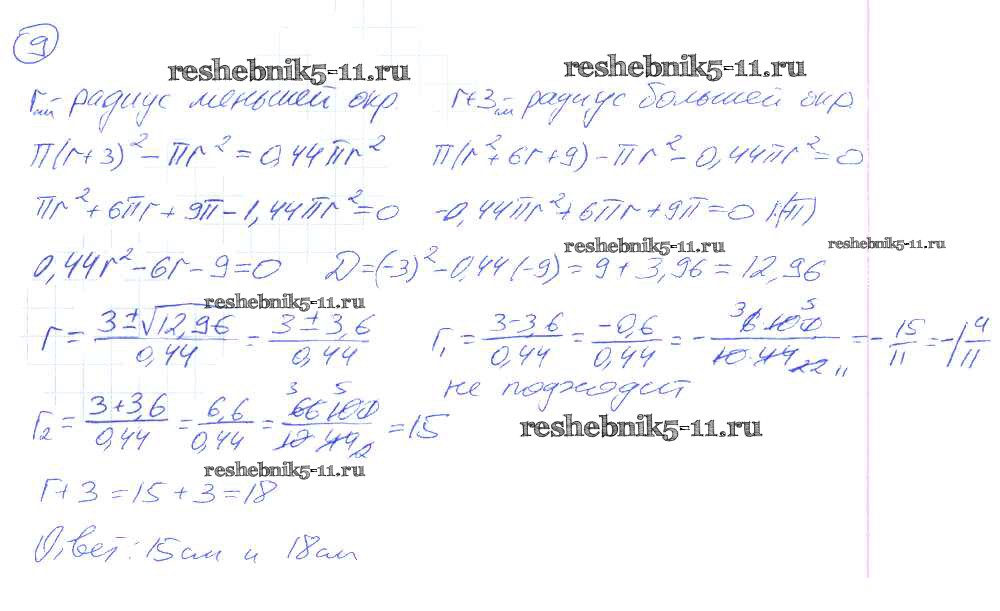 9
reshebnik5-11.ru reshebnik5-11.ru
r см – радиус меньшей окр. r+3 см – радиус большей окр
π(r+3)² – πr² = 0,44πr² π(r²+6r+9) – πr² – 0,44πr² = 0
πr² + 6πr + 9π – 1,44πr² = 0 -0,44πr² + 6πr + 9π = 0 |:(-π)
reshebnik5-11.ru reshebnik5-11.ru
0,44r² – 6r – 9 = 0 D = (-3)² – 0,44·(-9) = 9 + 3,96 = 12,96
reshebnik5-11.ru
r = (3 ± √12,96)/0,44 = (3 ± 3,6)/0,44 r₁ = (3 – 3,6)/0,44 = (-0,6)/0,44 = – (6·100)/(10·44) = – 15/11 = -1 4/11
не подходит
r₂ = (3 + 3,6)/0,44 = 6,6/0,44 = (66·100)/(10·44) = 15
reshebnik5-11.ru
reshebnik5-11.ru
r + 3 = 15 + 3 = 18
Ответ: 15см и 18см